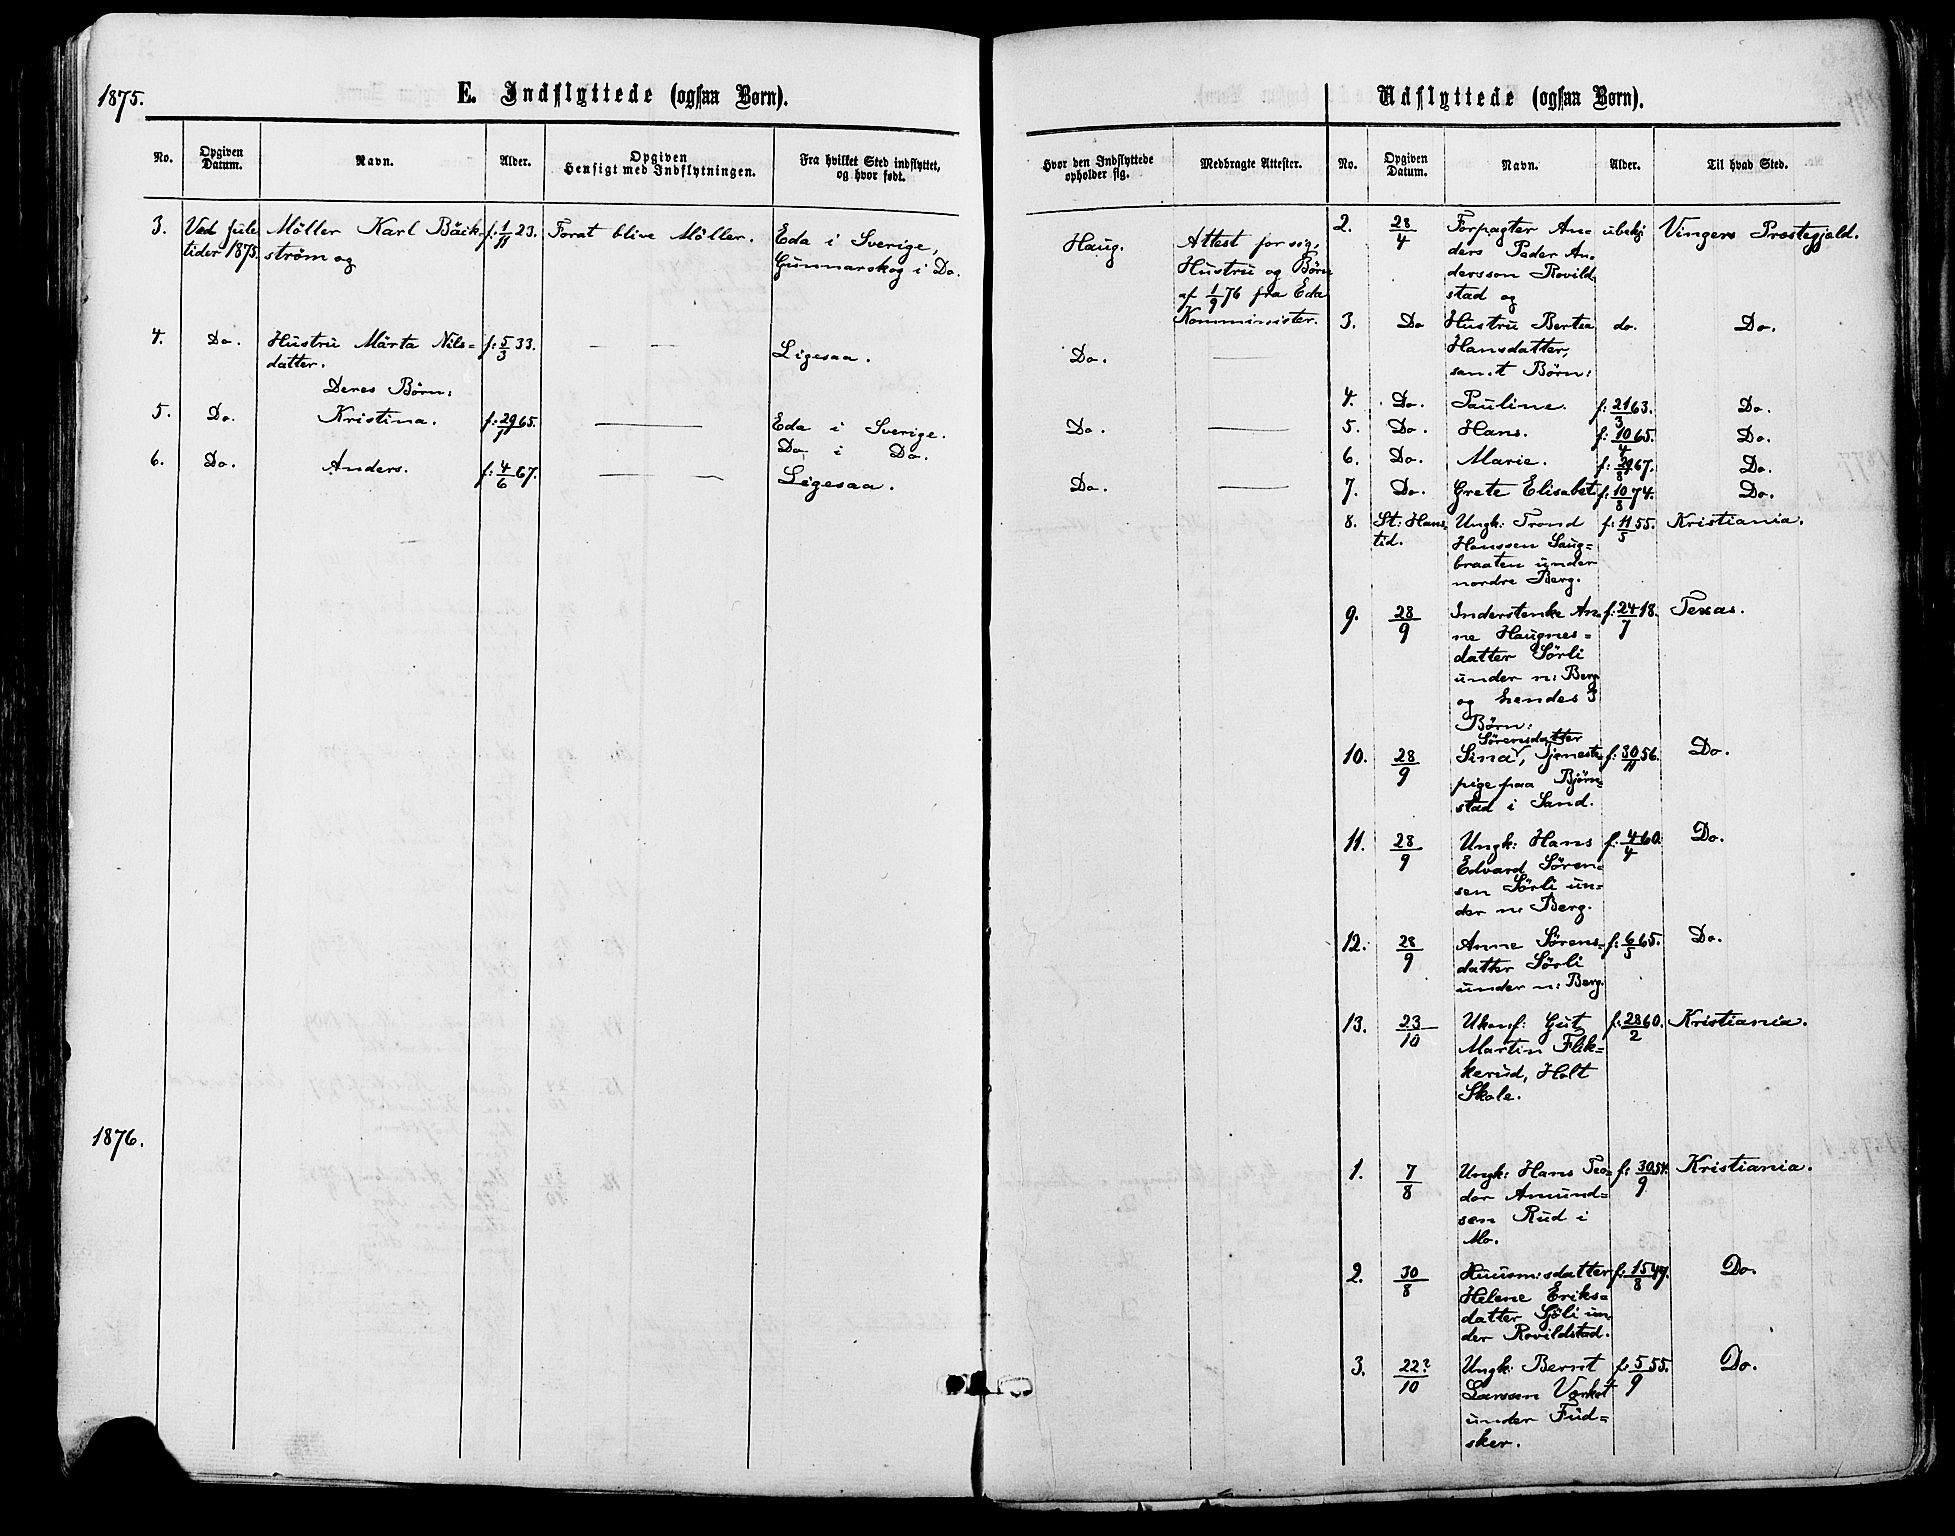 1875.
E. Indflyttede (ogsaa Børn).
No.
Opgiven
Datum.
Navn.
Alder.
Opgiven
Hensigt med Indflytningen.
Fra hvilket Sted indflyttet,
og hvor født.
3. Ved Jule Möller Karl Bäck- f: 1/11 23. Forat blive Möller. Eda i Sverige,
tider 1875. ström og Gunnarskog i Do.
4. Do. Hustru Märta Nils= f: 5/3 33. — — Ligesaa.
datter.
Deres Børn:
5. Do. Kristina. f: 29/7 65. — Eda i Sverige.
Do i Do.
6. Do. Anders. f: 4/6 67. — — Ligesaa.
1876.
Hvor den Indflyttede
opholder sig.
Medbragte Attester.
Haug. Attest for sig,
Hustru og Børn
af 1/9 76 fra Eda
Komminister.
Do. —
Do. —
Do. —
Udflyttede (ogsaa Børn).
No.
Opgiven
Datum.
Navn.
Alder.
Til hvad Sted.
2. 28/4 Forpagter An= ubekj Vingers Prestegjeld.
ders Peder An=
dersson Rovild
stad og
3. Do Hustru Bertea do. Do.
Hansdatter,
samt Børn:
4. Do. Pauline. f: 21/3 63. Do.
5. Do. Hans. f: 10/4 65. Do.
6. Do. Marie. f: 29/8 67. Do.
7. Do. Grete Elisabet f: 10/8 74. Do.
8. St: Hans= Ungk: Trond f: 11/5 55. Kristiania.
tid. Hanssen Saug=
braaten under
nordre Berg.
9. 28/9 Inderstenke An= f: 24/7 18. Texas.
ne Haugnes=
datter Sörli
under n: Berg
og hendes 3
Børn:
Sörensdatter
10. 28/9 Sina, Tjeneste- f: 30/11 56. Do.
pige paa Björn=
stad i Sand.
11. 28/9 Ungk: Hans f: 4/4 60. Do.
Edvard Sören=
sen Sörli un=
der n: Berg.
12. 28/9 Anne Sörens= f: 6/5 65. Do.
datter Sörli
under n: Berg.
13. 23/10 Ukonf: Gut f: 28/2 60. Kristiania.
Martin Flik=
kerud, Holt
Skole.
1. 7/8 Ungk: Hans Teo= f: 30/9 54. Kristiania.
dor Amund=
sen Rud i
Mo.
2. 30/8 Huusm:sdatter f: 15/8 47. Do.
Helene Eriks=
datter Sjöli un=
der Rovildstad.
3. 22?/10 Ungk: Bernt f: 5/9 55. Do.
Larssen
under Fud=
sker.